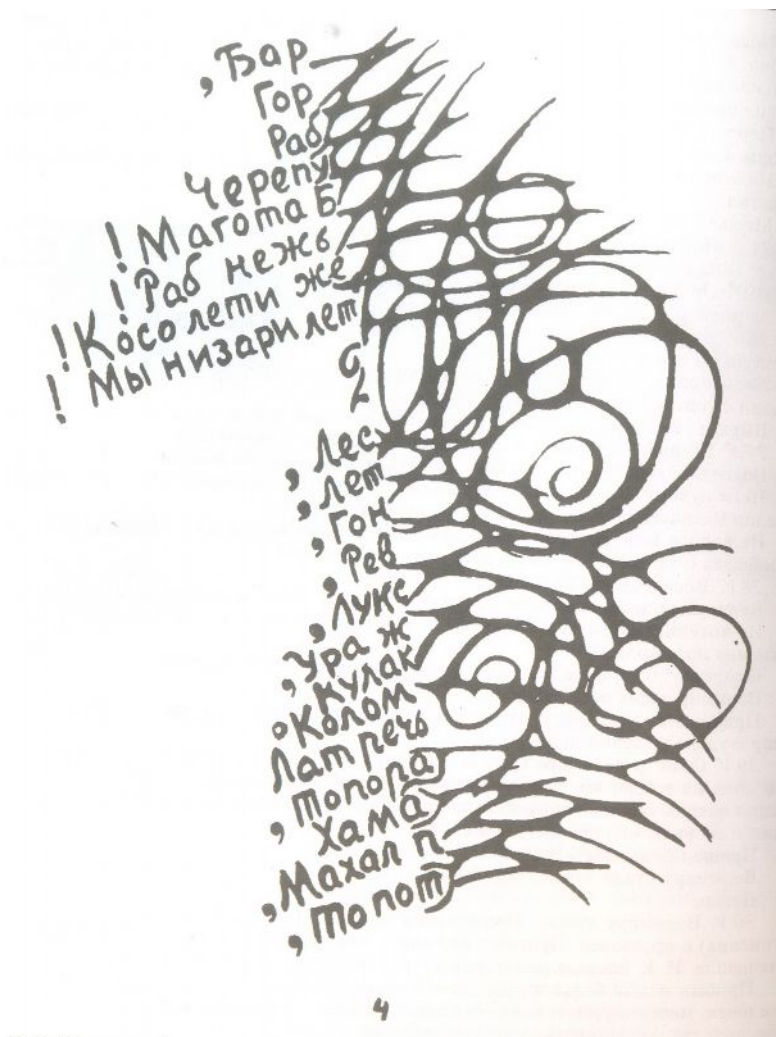 ,Бар
Гор
Раб
Черепу
!Магота Б
!Раб нежь
!Косо лети же
!Мы низари лет
9
2
,Лес
,Лет
,Гон
,Рев
,Лукс
,Ура ж
,Кулак
°Колом
Лат речь
,Топора
Хама
,Махал п
,Топот
4